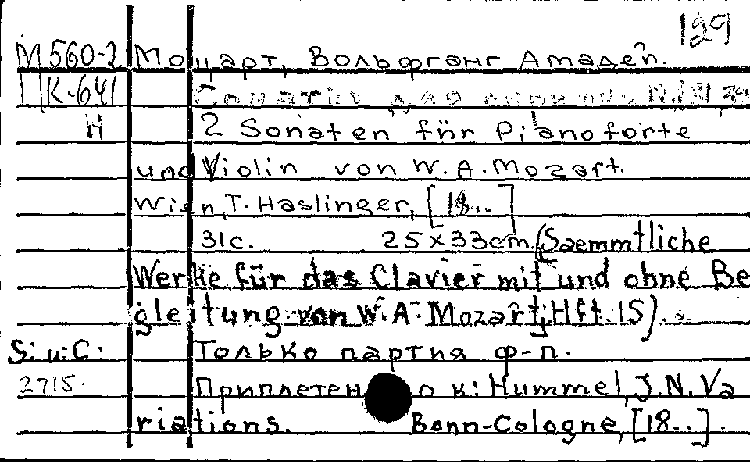 129
М 560-2 Моцарт, Вольфганг Амадей.
К-641 Сонаты для
Н 2 Sonaten für Pianoforte
und Violin von W.A.Mozart.
Wien, T. Haslinger, [18..]
31с. 25x33cm. (Saemmtliche
Werke für das Clavier mit und ohne Be
gleitung von W.A. Mozart, Hft. 15).
S. u. C. Только партия ф-п.
2715. Приплетено к: Hummel, J.N. Va
riations. Bonn-Cologne, [18..].